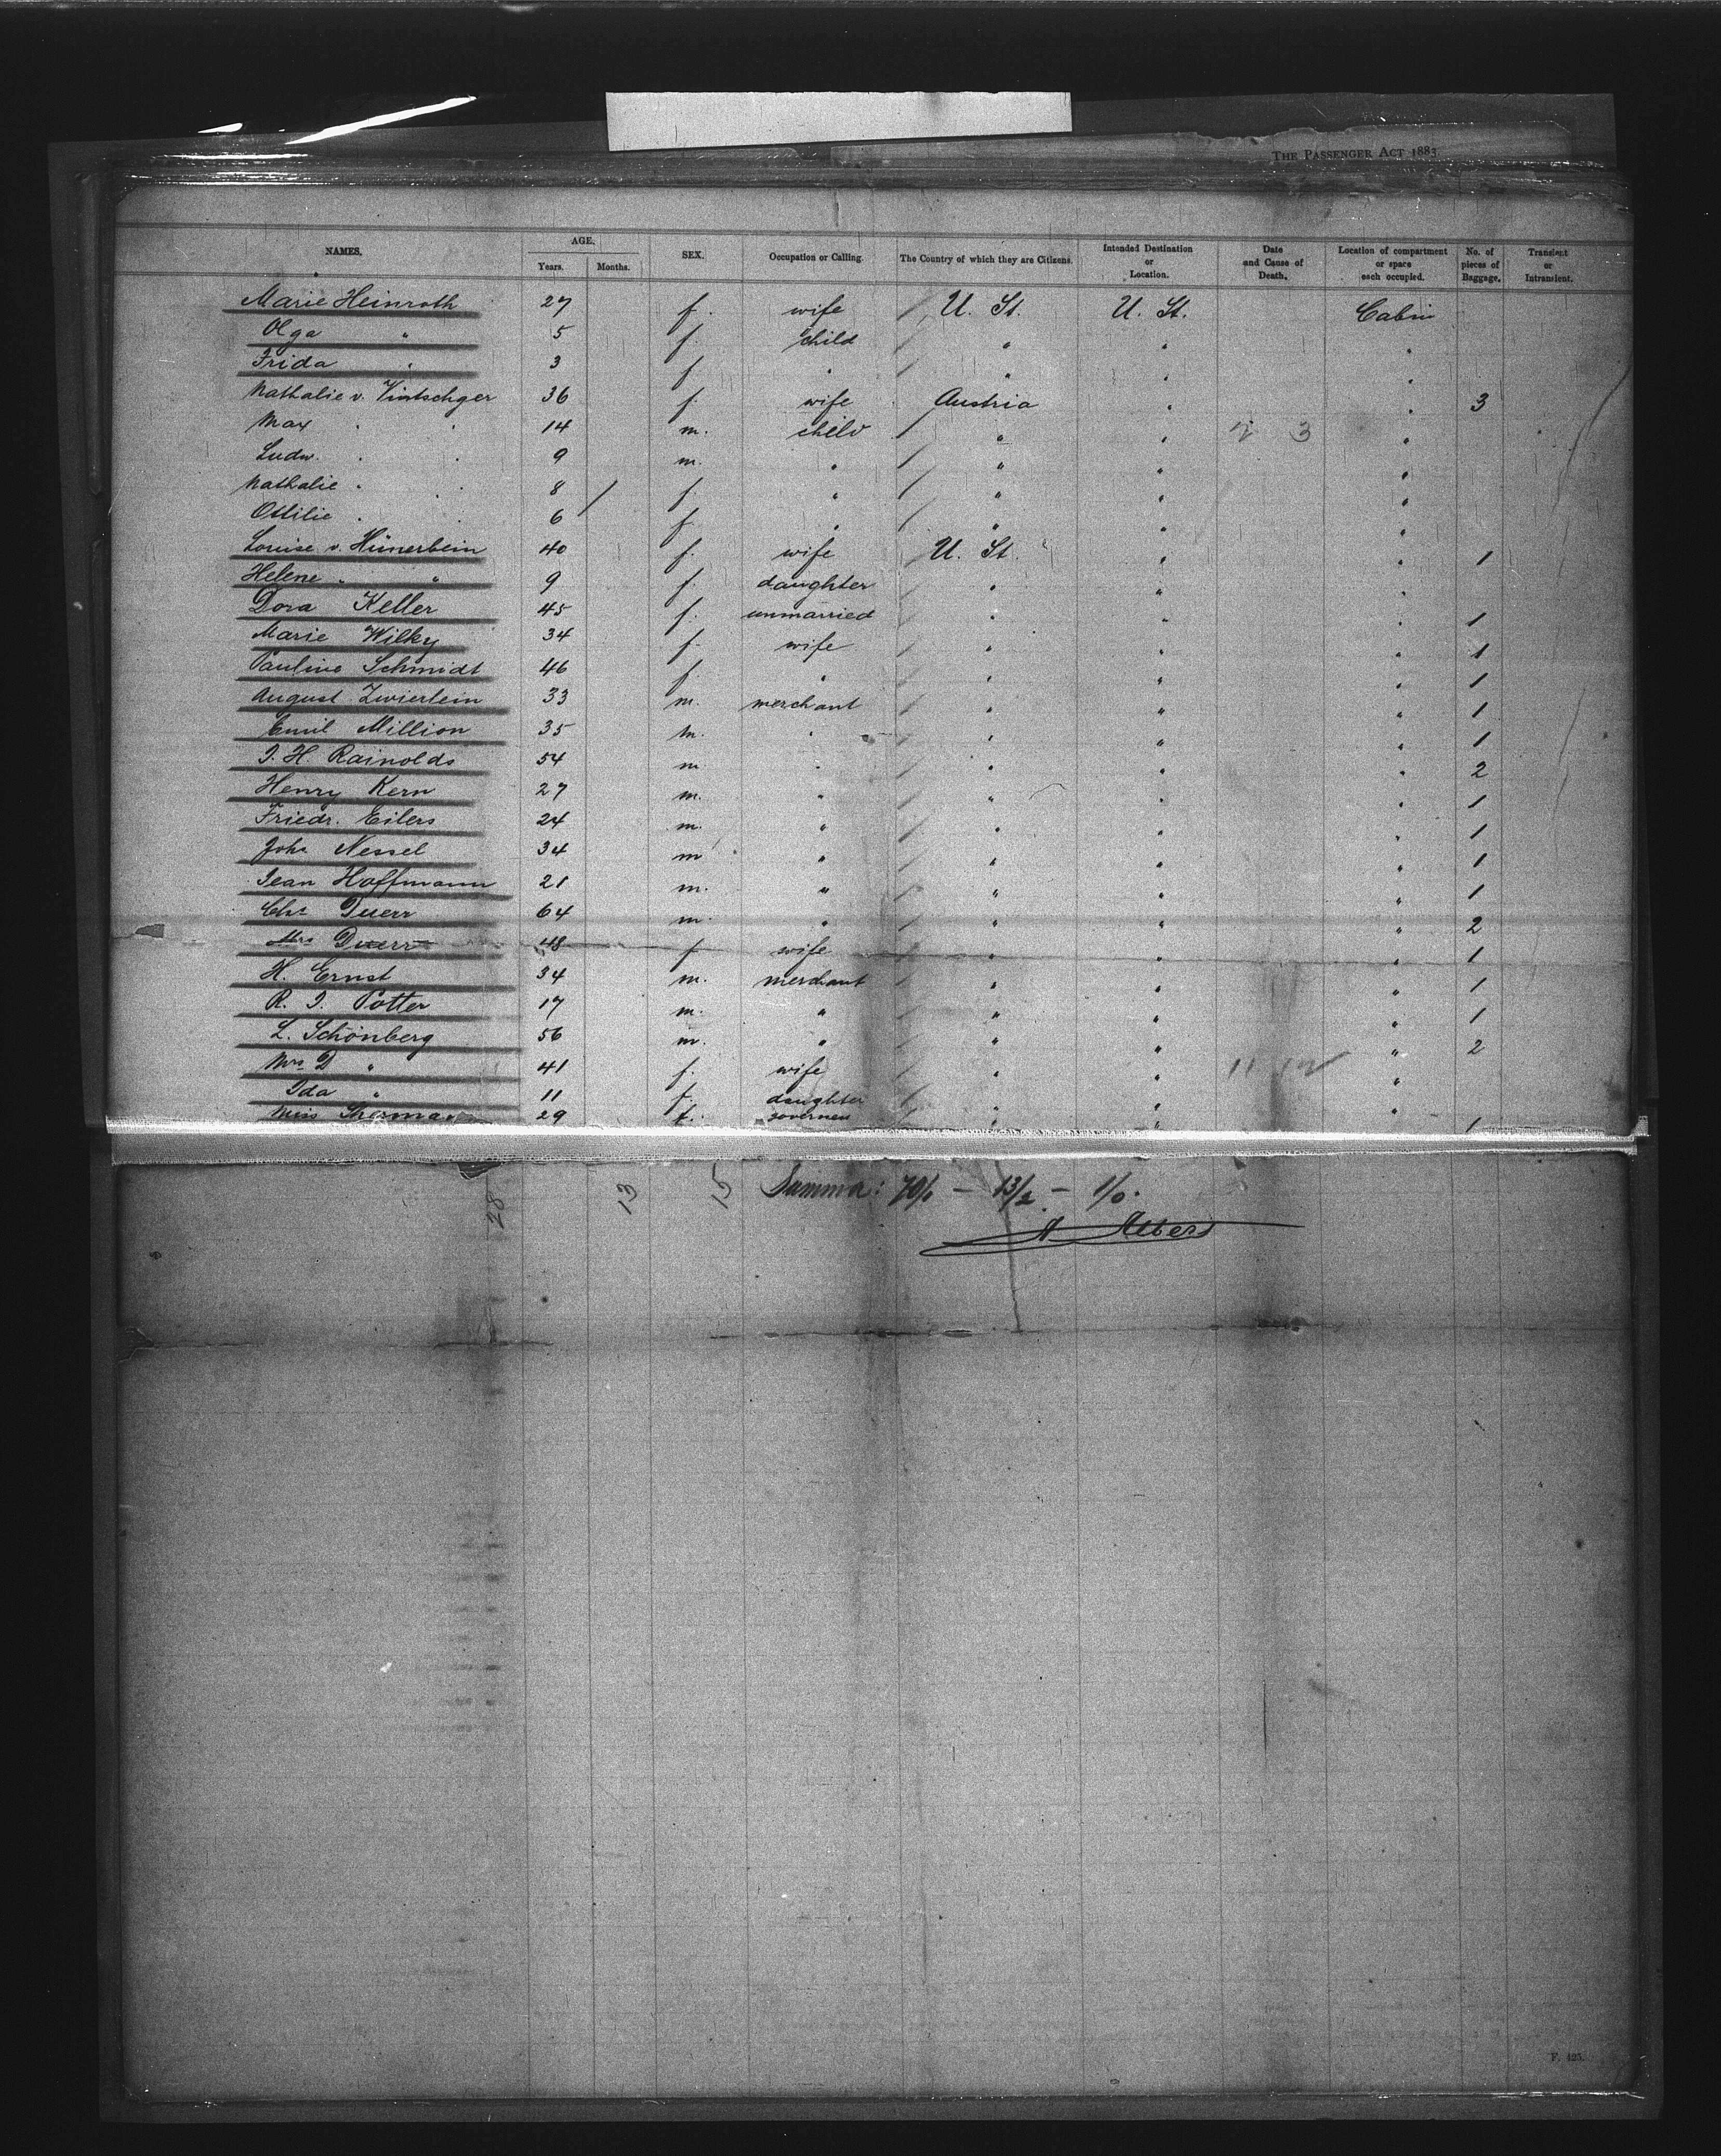 THE PASSENGER ACT 1883
NAMES. AGE. Years. Months. SEX. Occupation or Calling. The Country of which they are Citizens. Intended Destination or Location. Date and Cause of Death. Location of compartment or space each occupied. No. of pieces of Baggage. Transient or Intransient.
Marie Heinroth 27 f. wife / U. St. U. St. Cabin
Olga " 5 f. child / " " "
Frida " 3 f " / " " "
Nathalie v. Vintschger 36 f. wife Austria " " 3
Max " " 14 m. child / " " 2 3 "
Ludw. " " 9 m. " / " " "
Nathalie " " 8 / f. " / " " "
Ottilie " " 6 f. " / " " "
Louise v. Hünerbein 40 f. wife / U. St. " " 1
Helene " " 9 f. daughter / " " "
Dora Keller 45 f. unmarried / " " " 1
Marie Wilky 34 f. wife / " " " 1
Pauline Schmidt 46 f. " / " " " 1
August Zwierlein 33 m. merchant / " " " 1
Emil Million 35 m. " / " " " 1
J. H. Rainolds 54 m " / " " " 2
Henry Kern 27 m. " / " " " 1
Friedr. Eilers 24 m. " / " " " 1
John Nessel 34 m " / " " " 1
Jean Hoffmann 21 m. " / " " " 1
Chs Duerr 64 m. " / " " " 2
Mrs Duerr 48 f wife / " " " 1
H. Ernst 34 m. merchant / " " " 1
R. J. Potter 17 m. " / " " " 1
L. Schönberg 56 m. " / " " " 2
Mrs D " 41 f. wife / " " 11 12 "
Ida " 11 f. daughter / " " "
Miss Sherman 29 f. governess " " 1
28 13 15 Summa: 70/0 – 13/2 – 1/0.
A Albers
F. 495.